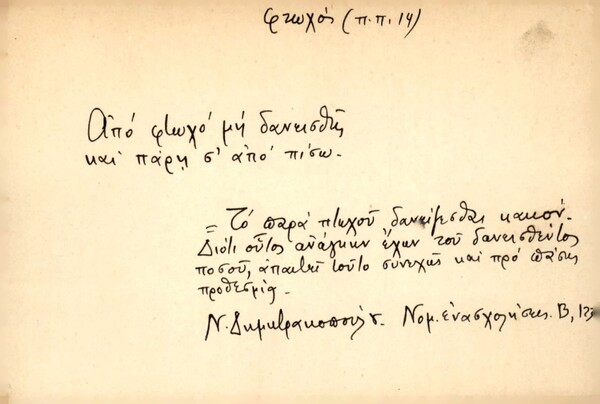 φτωχός (π.π. 14)
Ἀπό φτωχό μή δανεισθῆς
καί πάρῃ σ' ἀπό πίσω.
= Τό παρά πτωχοῦ δανείζεσθαι κακόν.
Διότι οὗτος ἀνάγκην ἔχων τοῦ δανεισθέντος
ποσοῦ, ἀπαιτεῖ τοῦτο συνεχῶς καί πρό πάσης
προθεσμίας.
Ν. Δημητρακοπούλου. Νομ. ἐνασχολήσεις. Β,